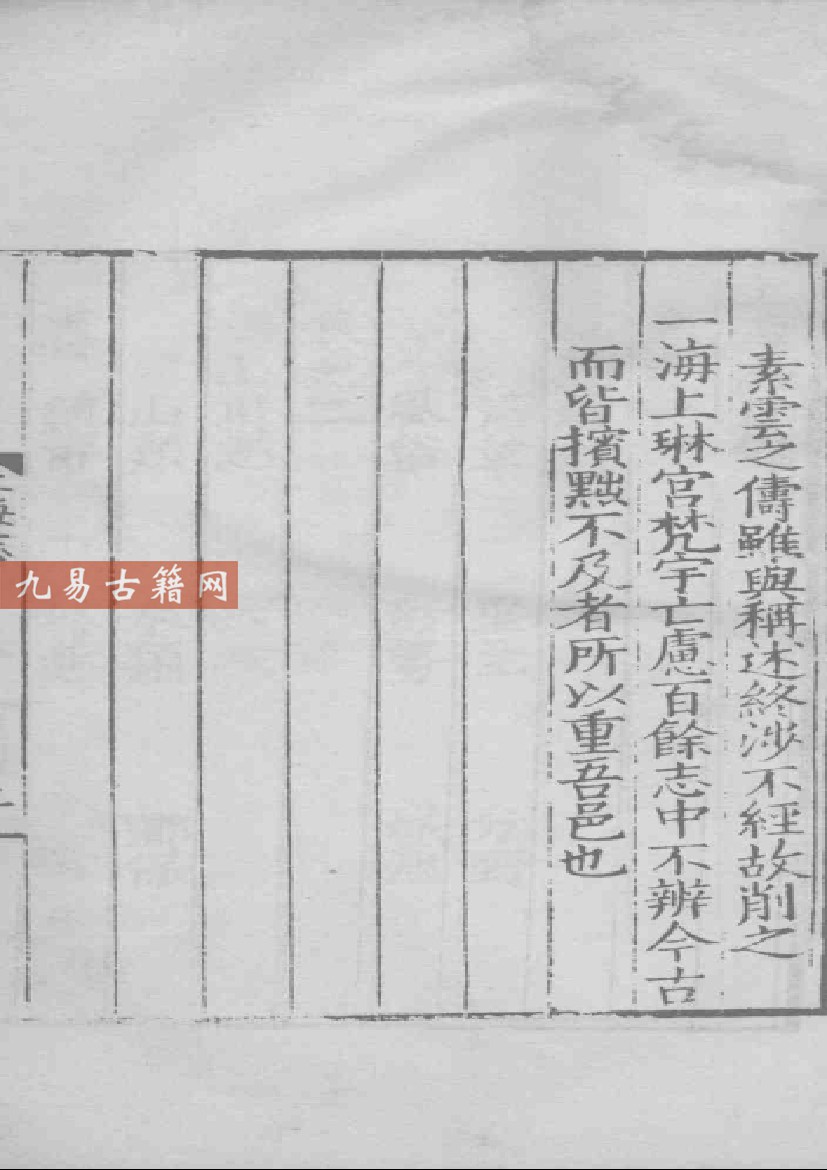 素雲之儔雖與稱述終涉不經故削之
一海上琳宮梵宇亡慮百餘志中不辨今古
而皆擯黜不及者所以重吾邑也
上海志
九易古籍网